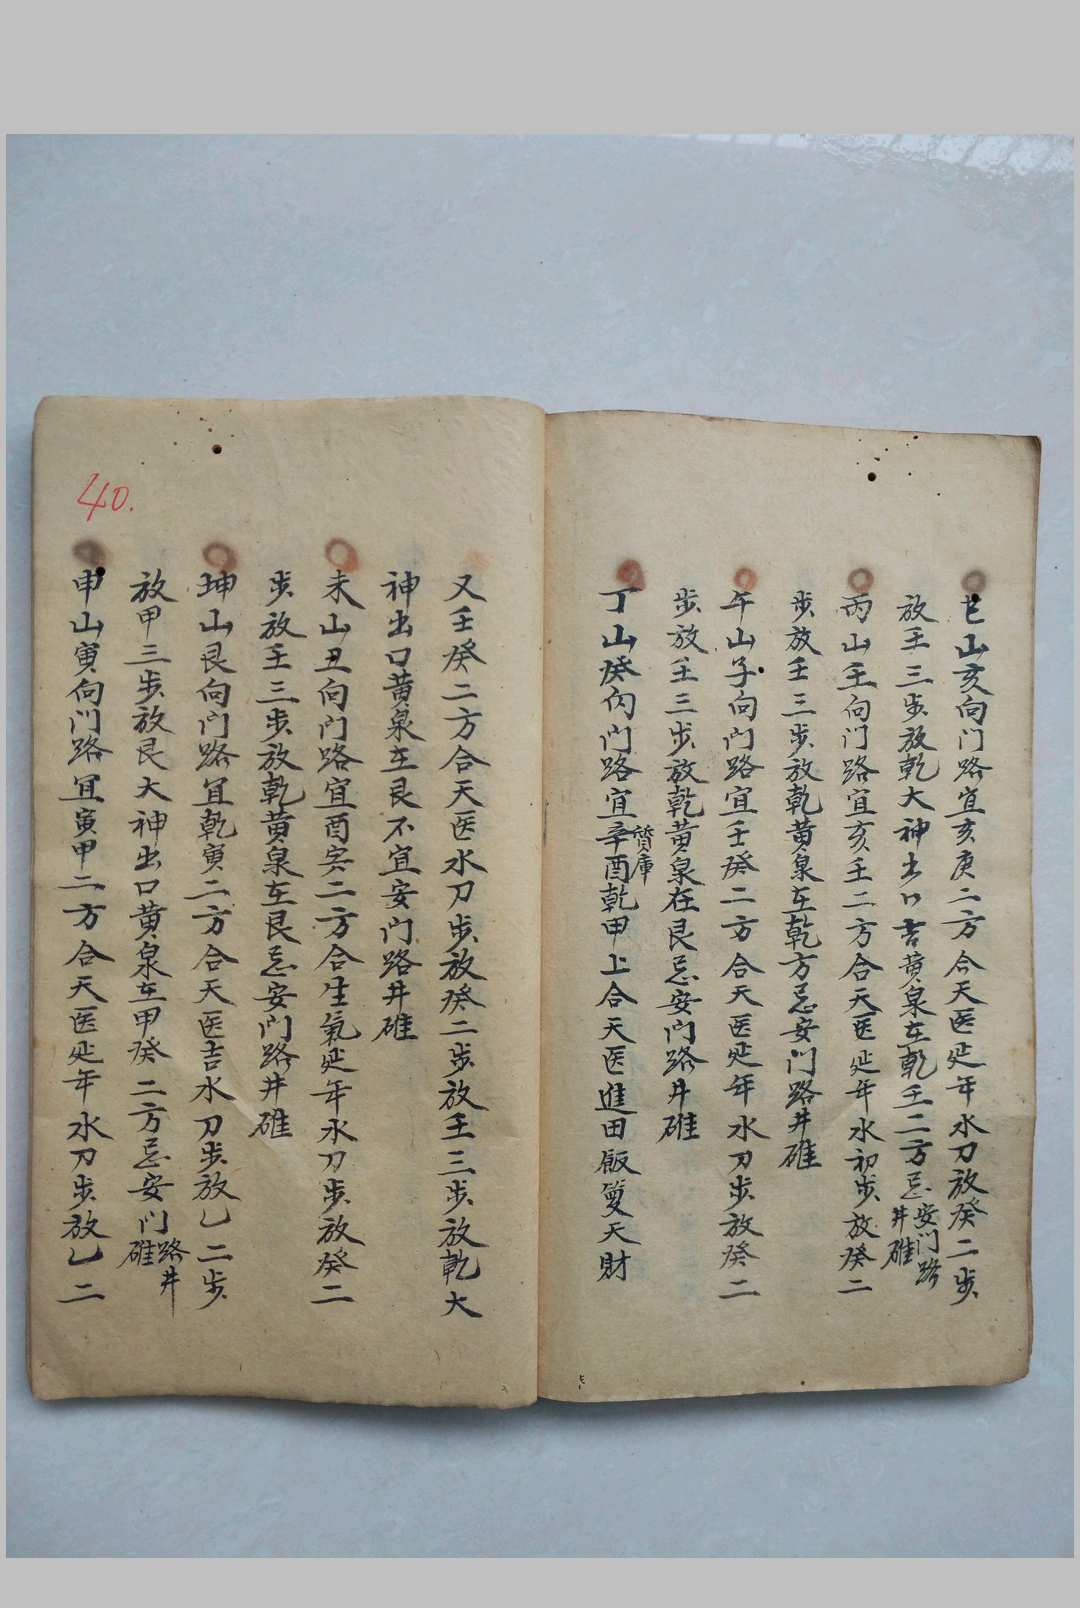 巳山亥向门路宜亥庚二方合天医延年水刀放癸二步
放壬三步放乾大神出口吉黄泉在乾壬二方忌安门路井碓
丙山壬向门路宜亥壬二方合天医延年水初步放癸二
步放壬三步放乾黄泉在乾方忌安门路井碓
午山子向门路宜壬癸二方合天医延年水刀步放癸二
步放壬三步放乾黄泉在艮忌安门路井碓
丁山癸向门路宜辛酉乾甲上合天医進田
天財
質庫
又壬癸二方合天医水刀步放癸二步放壬三步放乾大
神出口黄泉在艮不宜安门路井碓
未山丑向门路宜酉亥二方合生氣延年水刀步放癸二
步放壬三步放乾黄泉在艮忌安门路井碓
坤山艮向门路宜乾寅二方合天医吉水刀步放乙二步
放甲三步放艮大神出口黄泉在甲癸二方忌安门路井碓
申山寅向门路宜寅甲二方合天医延年水刀步放乙二
40.